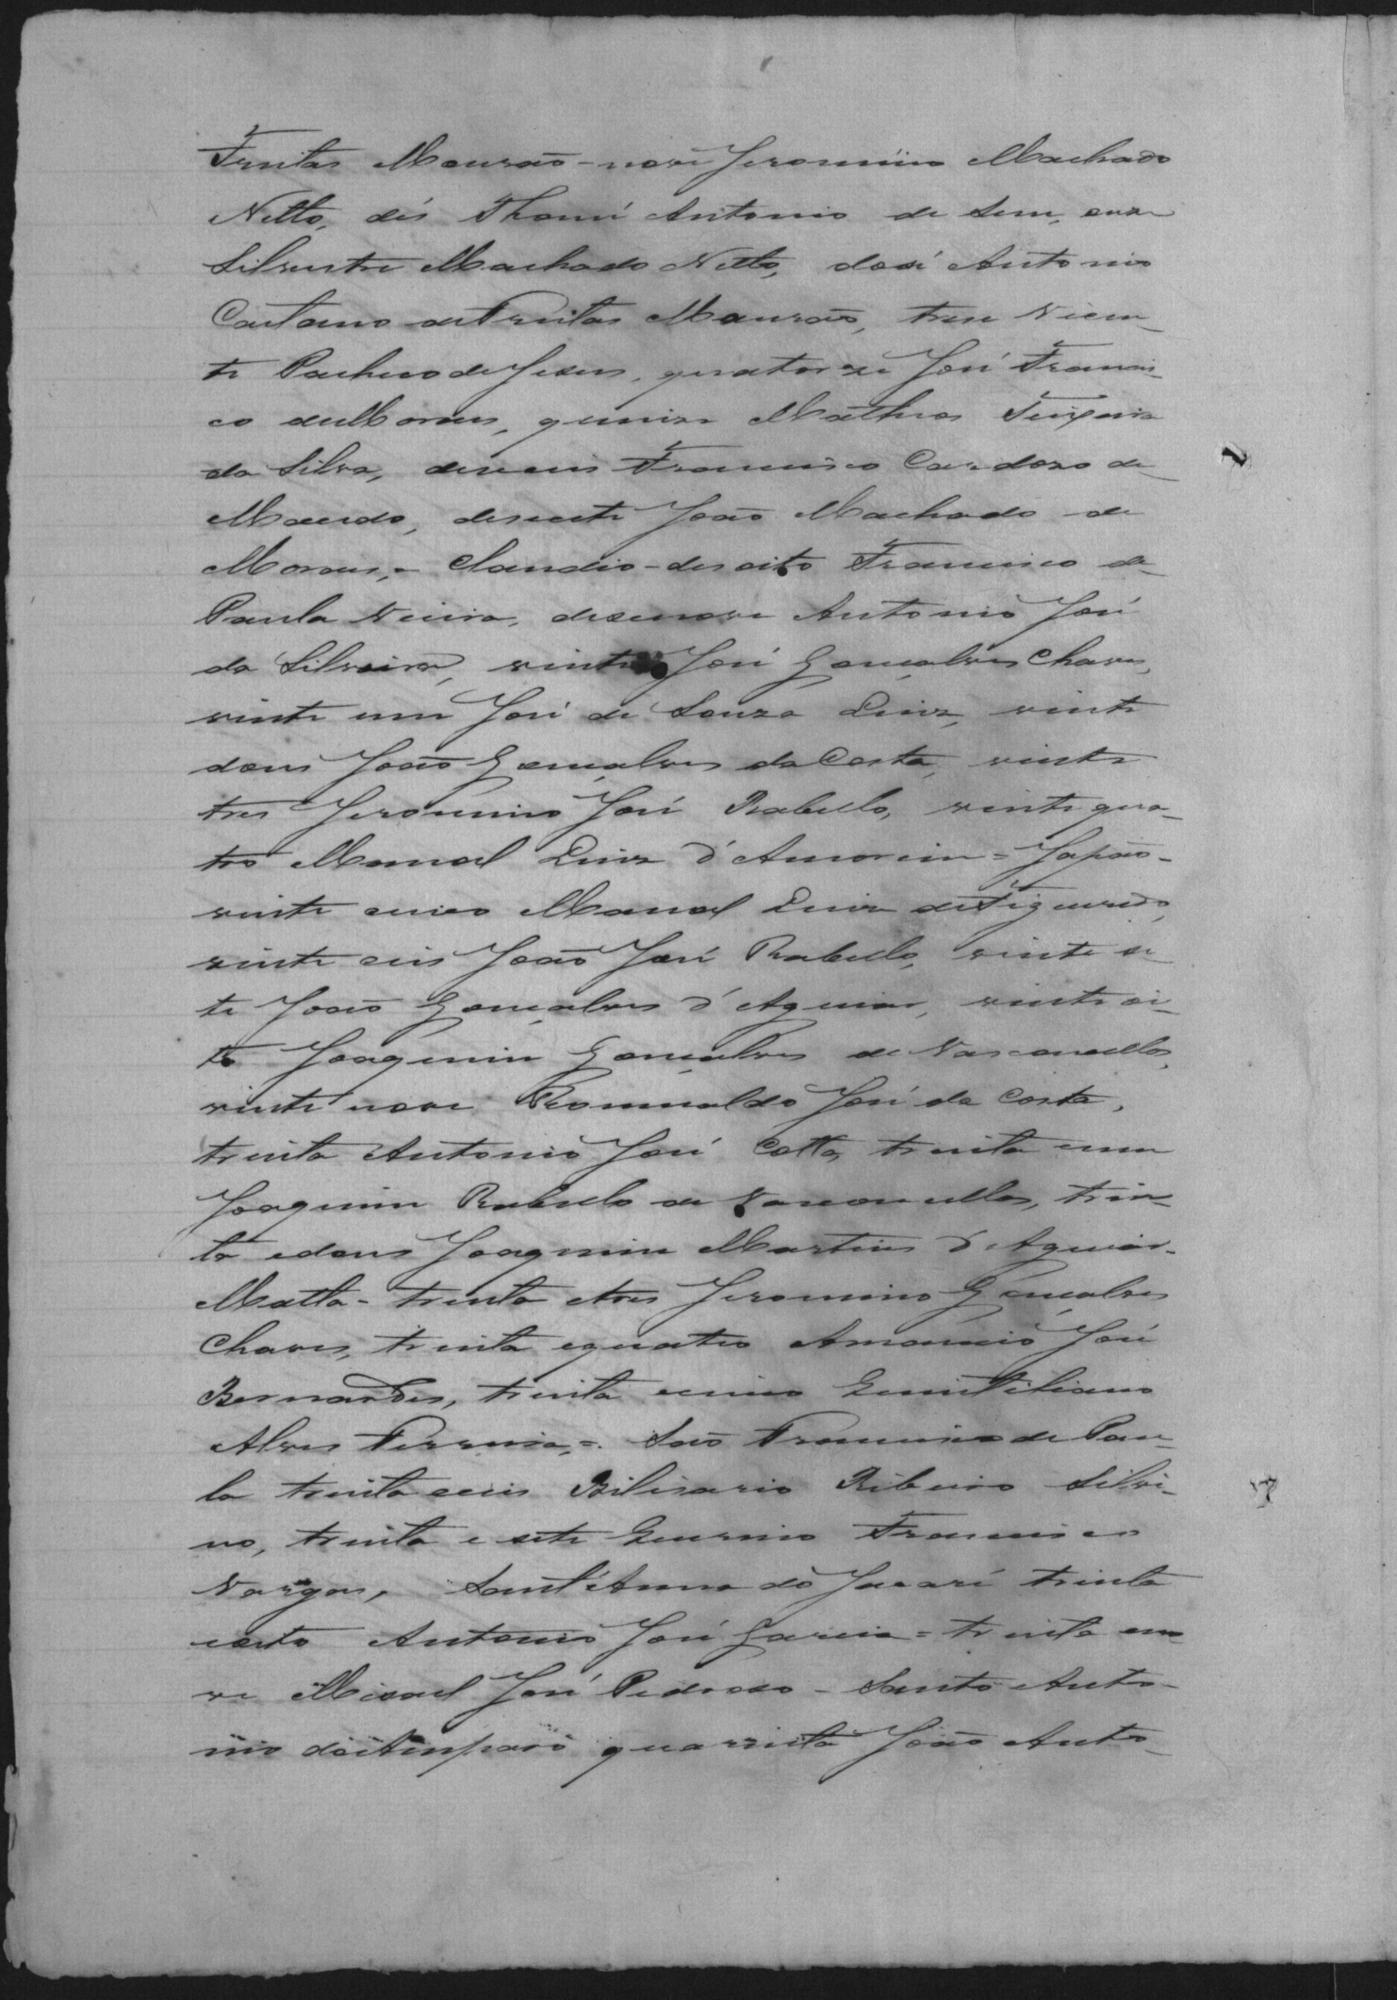 Freitas Mourão - nove Jeronimo Machado
Netto, dés Thomé Antonio de Sem, onze
Silvestre Machado Netto, dosé Antonio
Caetano de Freitas Mourão, trese Vicen_
te Pacheco de Jesus, quatorze José Francis_
co de Moraes, quinze Matheos Teixeira
da Silva, deseseis Francisco Cardozo de
Macedo, desesete João Machado de
Moraes, = Claudio - desoito Francisco de
Paula Vieira, desenove Antonio José
da Silveira, vinte José Gonçalves Chaves,
vinte um José de Souza Diniz, vinte
dous João Gonçalves da Costa, vinte
tres Jeronimo José Rabello, vinte qua_
tro Manoel Luiz d'Amorim = Japão -
vinte cinco Manoel Luiz de Figueiredo,
vinte seis João José Rabello, vinte se_
te João Gonçalves d'Aguiar, vinte oi_
to Joaquim Gonçalves de Vasconcellos,
vinte nove Romualdo José da Costa,
trinta Antonio José Cotta, trinta e um
Joaquim Rabello de Vasconcellos, trin_
ta e dous Joaquim Martins d'Aguiar -
Matta - trinta e tres Jeronimo Gonçalves
Chaves, trinta e quatro Amancio José
Bernardes, trinta e cinco Quintiliano
Alves Ferreira, = São Francisco de Pau_
la trinta e seis Bilisario Ribeiro Silvi_
no, trinta e sete Francisco
Vargas, Sant'Anna do Jacaré trinta
e oito Antonio José Garcia = trinta e no
ve Misael José Pedroso - Santo Anto_
nio do Amparo quarenta João Anto_